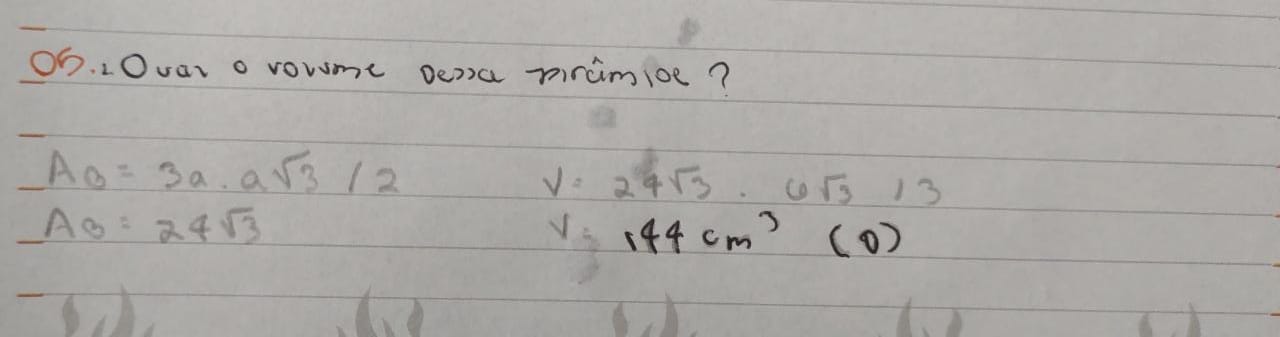 05. Qual o volume dessa pirâmide?
AB = 3a . a√3 / 2
AB = 24√3
V = 24√3 . 6√3 / 3
V = 144 cm³ (D)